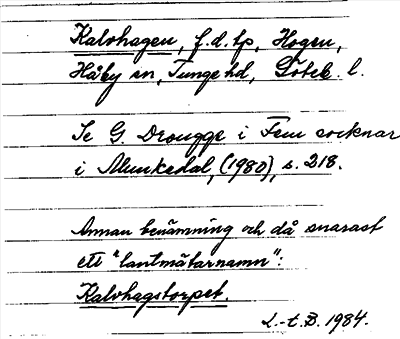 Kalvhagen, f.d. tp, Hogen,
Håby sn, Tunge hd, Göteb. l.
Se G. Drougge i Fem socknar
i Munkedal, (1980), s. 218.
Annan benämning och då snarast
ett "lantmätarnamn":
Kalvhagstorpet.
L.-t. B. 1984.